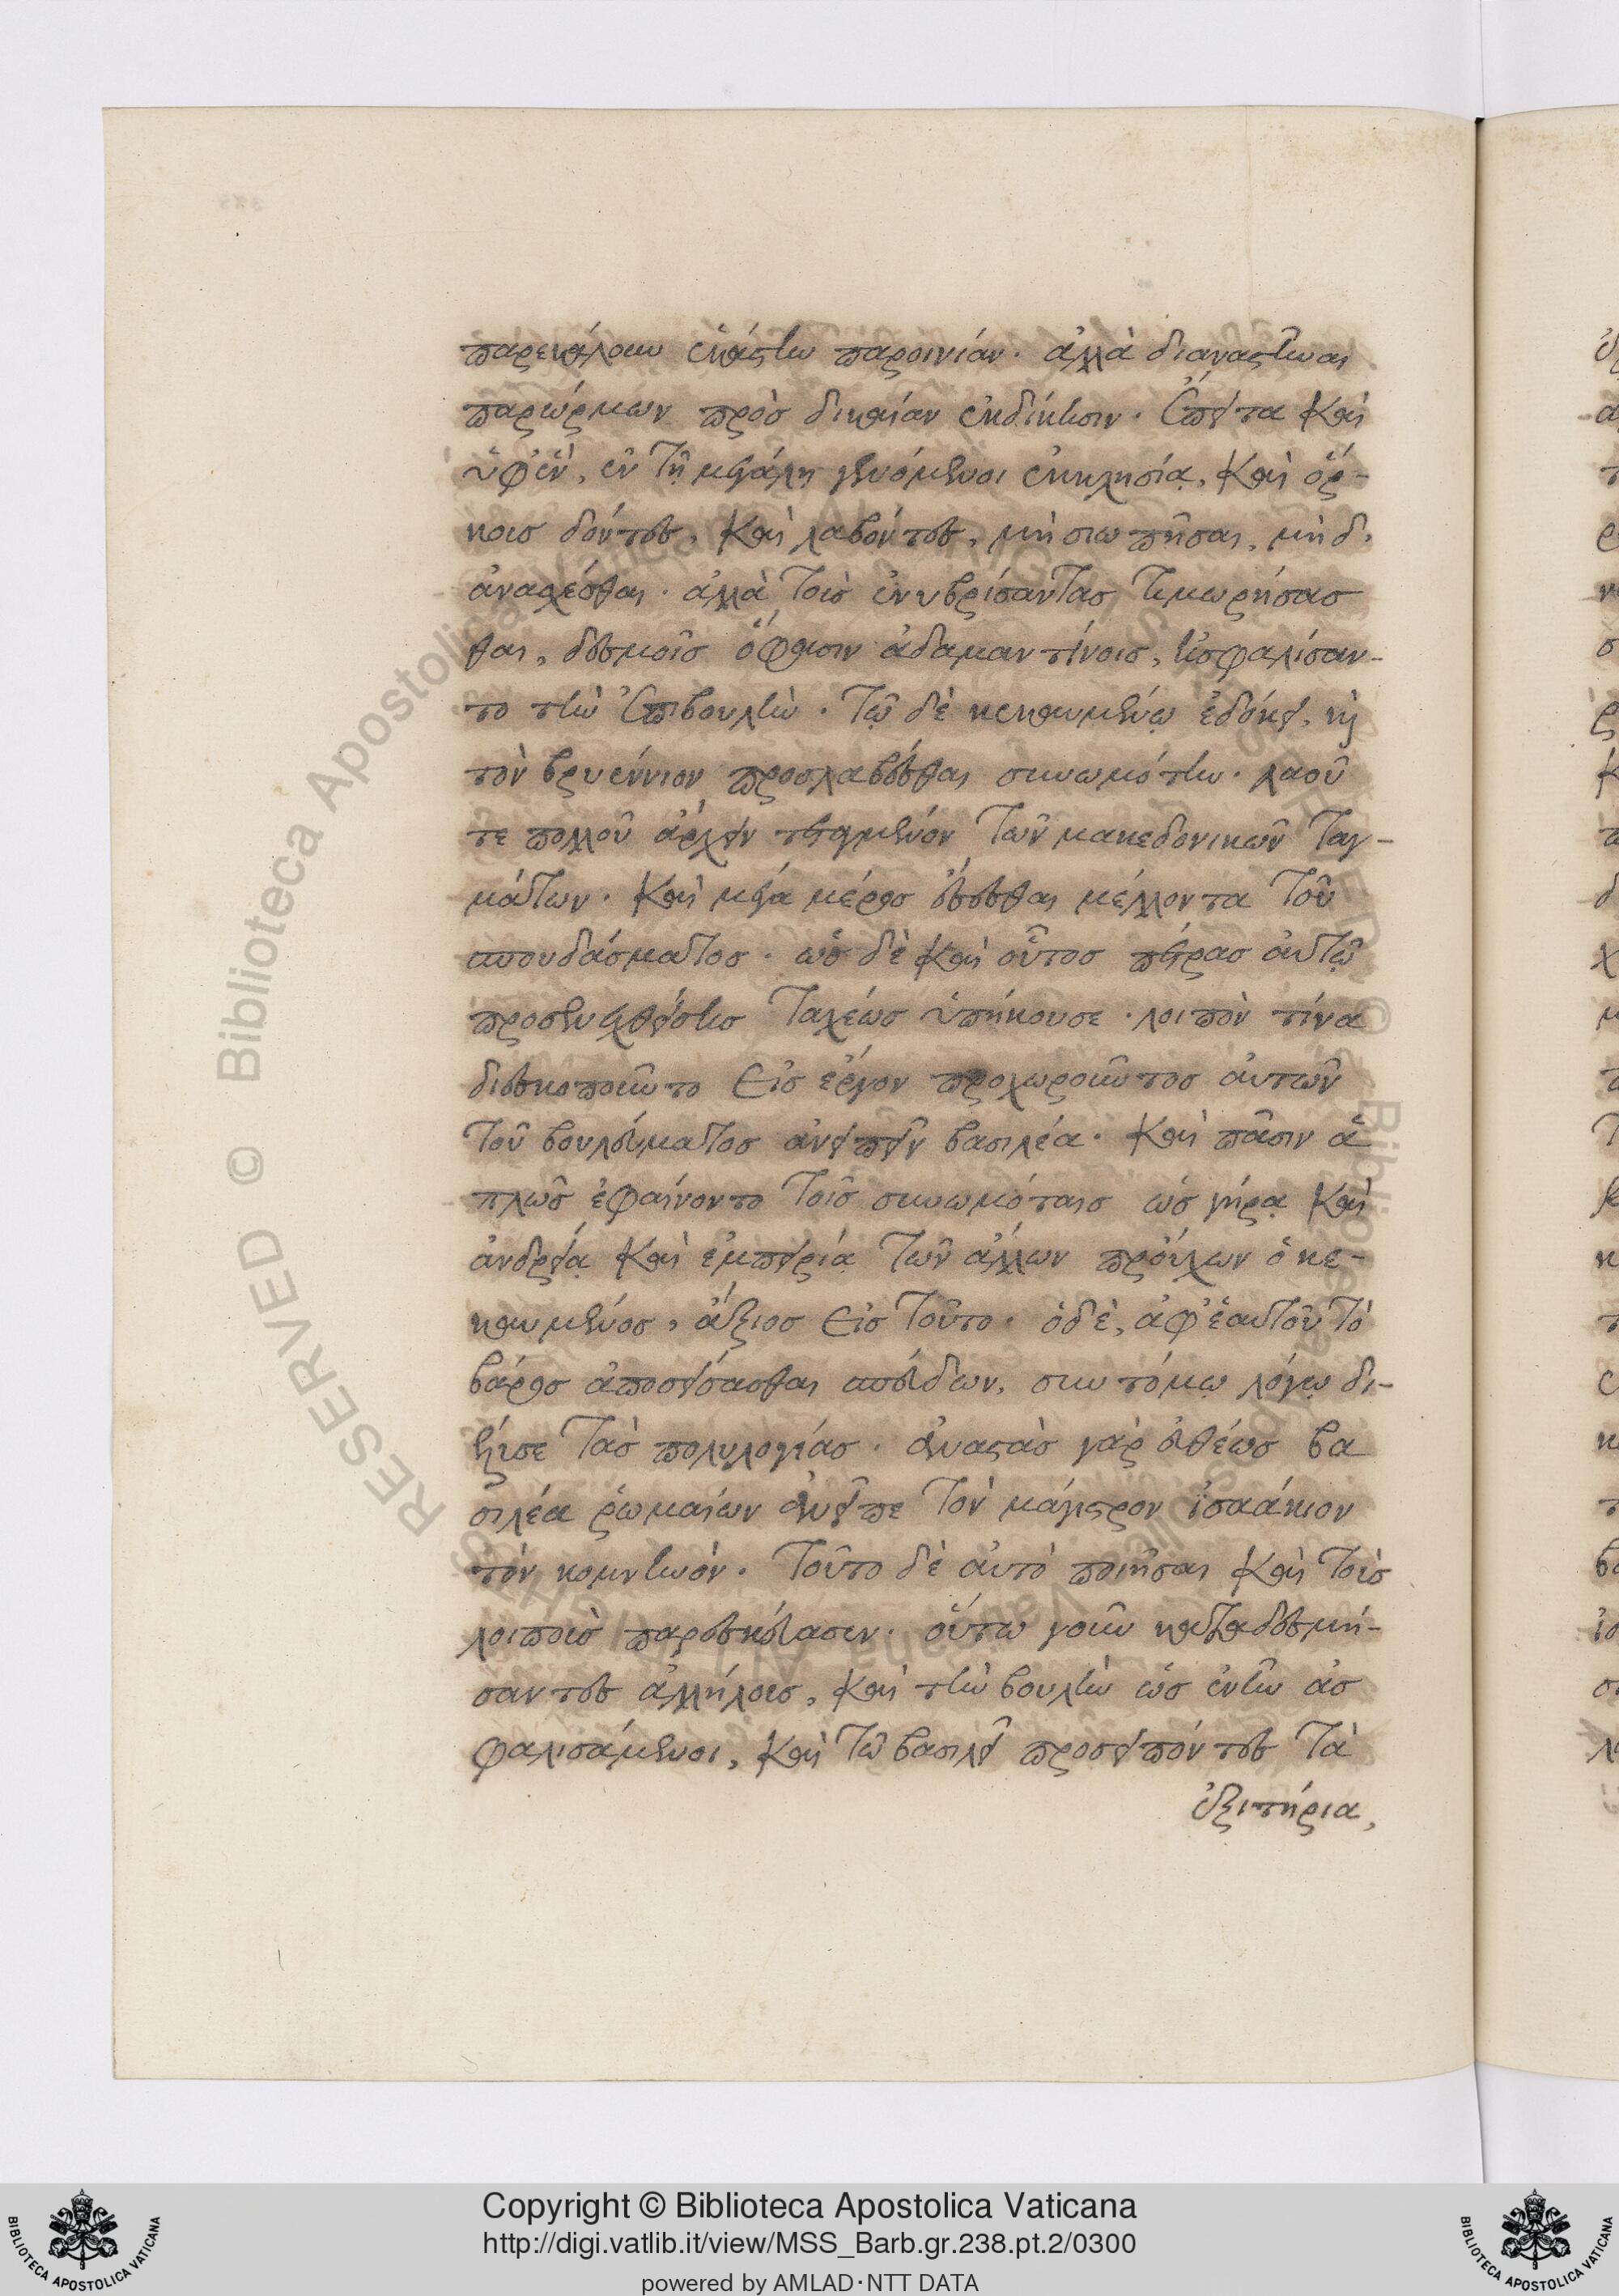 παρεκάλουν ἑκάστην παροινίαν. ἀλλὰ διαναστῆναι
παρώρμων πρὸσ δικαίαν ἐκδίκησιν. ἔπειτα καὶ
ὑφἓν, ἐν τῇ μεγάλῃ γενόμενοι ἐκκλησίᾳ, καὶ ὅρ-
κοισ δόντεσ, καὶ λαβόντεσ, μὴ σιωπῆσαι, μὴδ'
ἀνασχέσθαι. ἀλλὰ τοὺσ ἐνυβρίσαντασ τιμωρήσασ
θαι, δεσμοῖσ ὅ φασιν ἀδαμαντίνοισ, ἠσφαλίσαν-
το τὴν ἐπιβουλὴν. τῷ δὲ κεκαυμένῳ ἐδόκει, καὶ
τὸν βρυέννιον προσλαβέσθαι συνωμότην. λαοῦ
τε πολλοῦ ἄρχειν τεταγμένον τῶν μακεδονικῶν ταγ-
μάτων. καὶ μέγα μέροσ ἔσεσθαι μέλλοντα τοῦ
σπουδάσματοσ. ὡσ δὲ καὶ οὗτοσ πέρασ αὐτῷ
προσενεχθείσησ ταχέωσ ὑπήκουσε. λοιπὸν τίνα
διεσκοποῦντο εἰσ ἔργον προχωροῦντοσ αὐτῶν
τοῦ βουλεύματοσ ἀνειπεῖν βασιλέα. καὶ πᾶσιν ἁ
πλῶσ ἐφαίνοντο τοῖσ συνωμόταισ ὡσ γήρᾳ καὶ
ἀνδρείᾳ καὶ ἐμπειρίᾳ τῶν ἄλλων προὔχων ὁ κε-
καυμένοσ, ἄξιοσ εἰσ τοῦτο. ὁ δὲ, ἀφ' ἑαυτοῦ τὸ
βάροσ ἀποσείσασθαι σπεύδων, συντόμῳ λόγῳ δι-
έλυσε τὰσ πολυλογίασ. ἀναστὰσ γὰρ εὐθέωσ βα
σιλέα ῥωμαίων ἀνεῖπε τὸν μάγιστρον ἰσαάκιον
τὸν κομνηνόν. τοῦτο δὲ αὐτὸ ποιῆσαι καὶ τοὺσ
λοιποὺσ παρεσκεύασεν. οὕτω γοῦν καταδεσμή-
σαντεσ ἀλλήλουσ, καὶ τὴν βουλὴν ὡσ ἐνῆν ἀσ
φαλισάμενοι, καὶ τῷ βασιλεῖ προσειπόντεσ τὰ
ἐξιτήρια,
Copyright © Biblioteca Apostolica Vaticana
http://digi.vatlib.it/view/MSS_Barb.gr.238.pt.2/0300
powered by AMLAD·NTT DATA